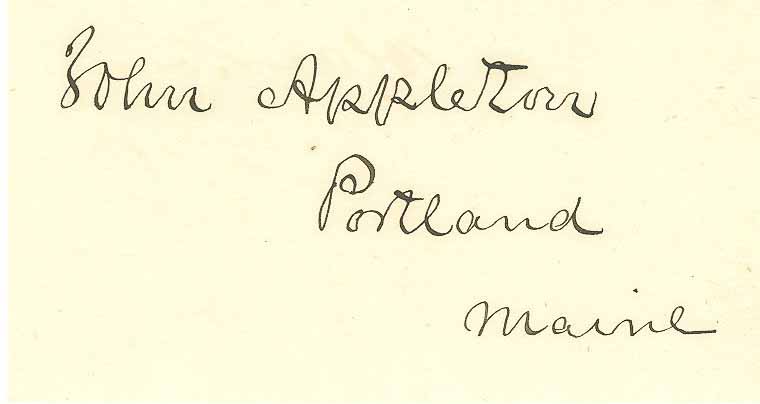 John Appleton
Portland
Maine